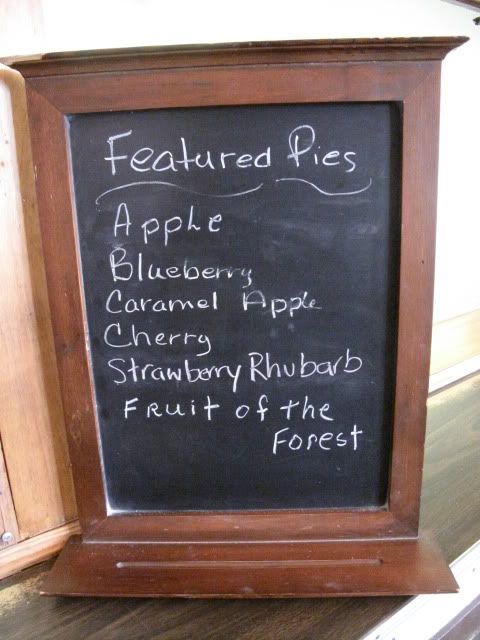 Featured Pies
Apple
Blueberry
Caramel Apple
Cherry
Strawberry Rhubarb
Fruit of the
Forest